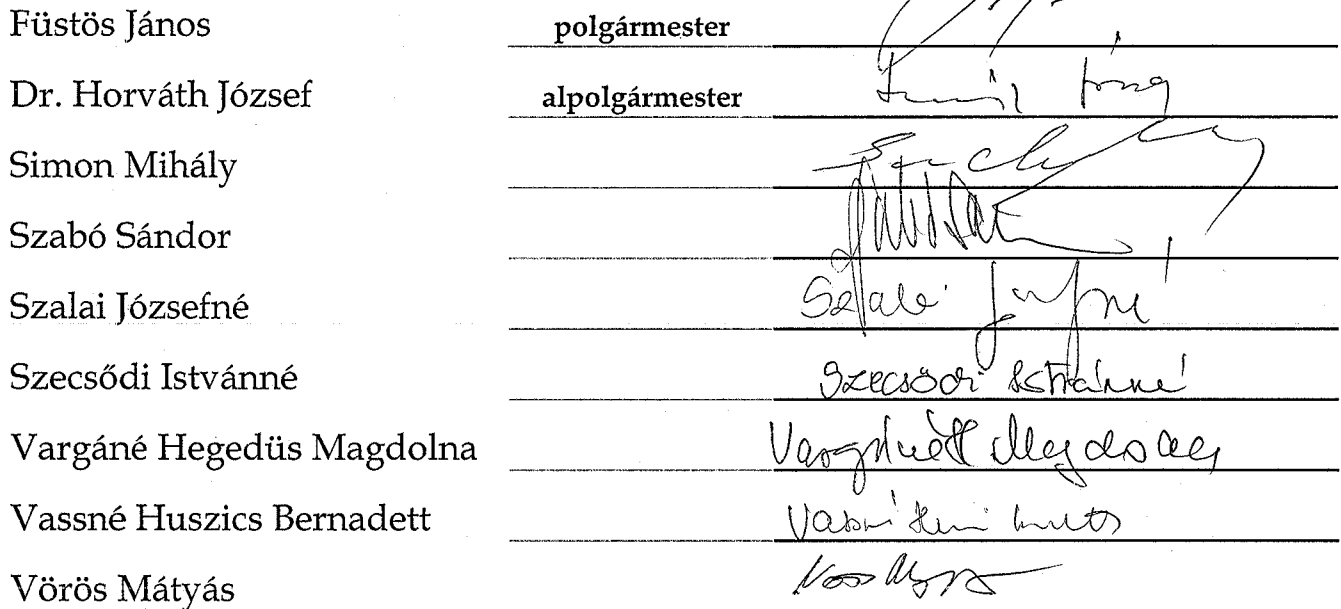 Füstös János polgármester
Dr. Horváth József alpolgármester
Simon Mihály
Szabó Sándor
Szalai Józsefné Szalai
Szecsődi Istvánné Szecsődi Istvánné
Vargáné Hegedüs Magdolna Vargáné H Magdolna
Vassné Huszics Bernadett
Vörös Mátyás